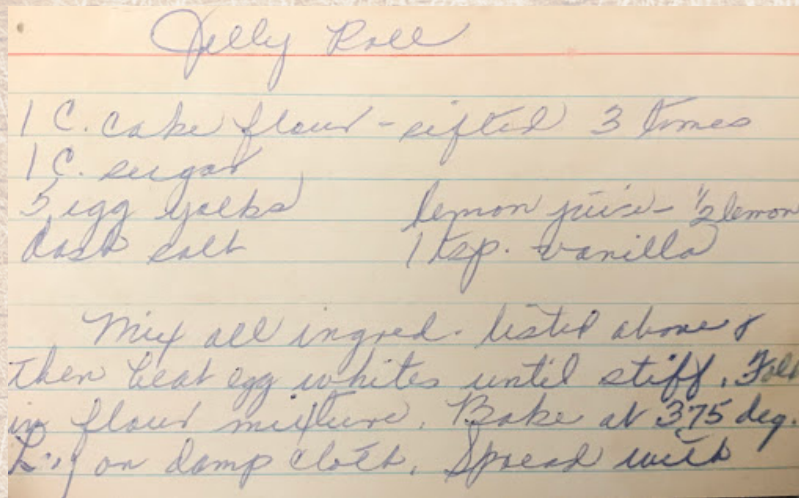 Jelly Roll
1 C. cake flour - sifted 3 times
1 C. sugar
5 egg yolks lemon juice - 1/2 lemon
dash salt 1 tsp. vanilla
Mix all ingred. listed above &
then beat egg whites until stiff. Fold
in flour mixture. Bake at 375 deg.
on damp cloth. Spread with